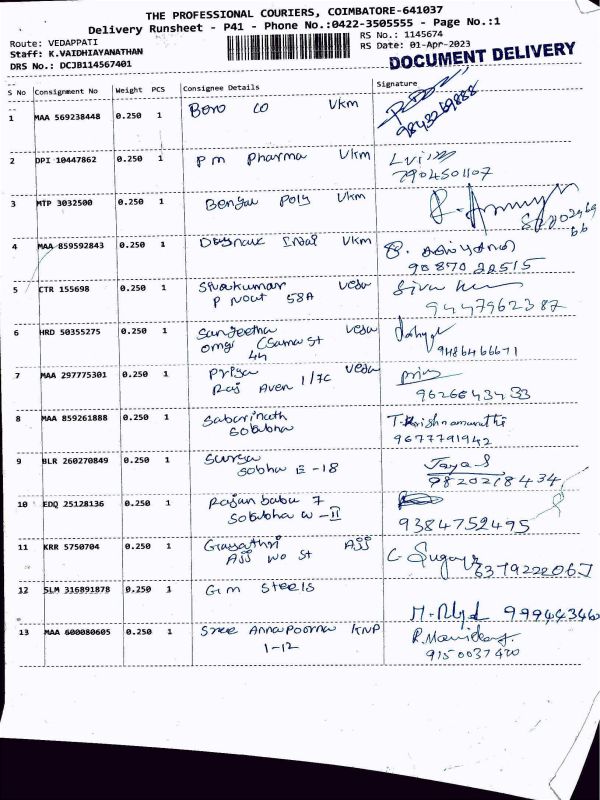 THE PROFESSIONAL COURIERS, COIMBATORE-641037
Delivery Runsheet - P41 - Phone No.:0422-3505555 - Page No.:1
Route: VEDAPPATI
RS No.: 1145674
Staff: K.VAIDHIAYANATHAN
RS Date: 01-Apr-2023
DRS No.: DCJB114567401
DOCUMENT DELIVERY
S No Consignment No Weight PCS Consignee Details Signature
1 MAA 569238448 0.250 1 Boro co Vkm
9843269888
2 DPI 10447862 0.250 1 Pm Pharma Vkm
7904501107
3 MTP 3032500 0.250 1 Bengal Poly Vkm
4 MAA 859592843 0.250 1 Vkm
90870 22515
5 CTR 155698 0.250 1 Sivakumar Veda Siva
P 58A 9447962387
6 HRD 50355275 0.250 1 Sangeetha Veda
omgi St
44 9486466671
7 MAA 297775301 0.250 1 Priya Veda Priy
Raj Aven 1/7C 9626643433
8 MAA 859261888 0.250 1 Sabarinath T.Krishnamurathi
Sobubha 9677791942
9 BLR 260270849 0.250 1 Surya Jaya S
Sobha E-18 9820218434
10 EDQ 25128136 0.250 1 Rajan babu 7
Sobubha W-II 9384752495
11 KRR 5750704 0.250 1 Gayathri Ajj
Ajj wo St 6379222067
12 SLM 316891878 0.250 1 G.m Steels
99944346
13 MAA 600080605 0.250 1 Sree Annapoorna KNP
1-12 9150037420